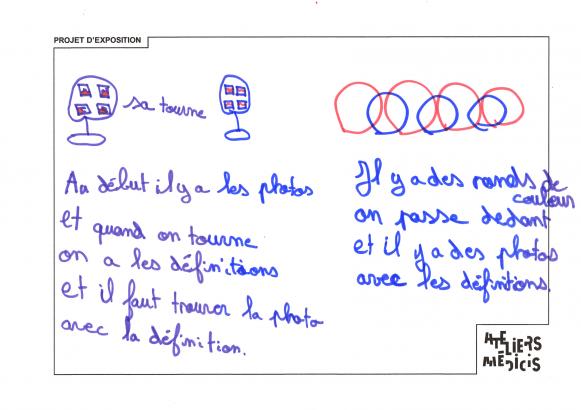 PROJET D'EXPOSITION
sa tourne
Au début il y a les photos
et quand on tourne
on a les définitions
et il faut trouver la photo
avec la définition.
Il y a des ronds de
couleurs
on passe dedant
et il y a des photos
avec les définitions.
ATELIERS
MÉDICIS